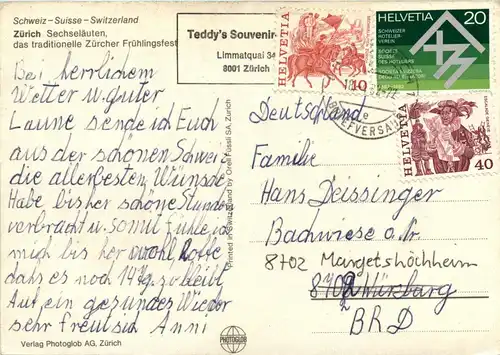 Schweiz – Suisse – Switzerland
Zürich Sechseläuten,
das traditionelle Zürcher Frühlingsfest
Teddy's Souvenir
Limmatquai 34
8001 Zürich
HELVETIA
40
HELVETIA 20
SCHWEIZER
HOTELIER-
VEREIN
HELVETIA
40
BRIEFVERSAND
Bei herrlichem
Wetter u. guter
Laune sende ich Euch
aus der schönen Schweiz
die allerbesten Wünsche
Habe bisher schöne Stunden
verbracht u. somit fühle ich
mich bis her wohl hoffe
dahs es noch 14 Tg. so bleibt
Auf ein gesundes Wieder
sehr freut sich Anni
Deutschland
Familie
Hans Deissinger
Bachwiese o. Nr
8702 Margetshöchheim
Würzburg
BRD
Printed in Switzerland by Orell Füssli SA, Zürich
Verlag Photoglob AG, Zürich
PHOTOGLOB